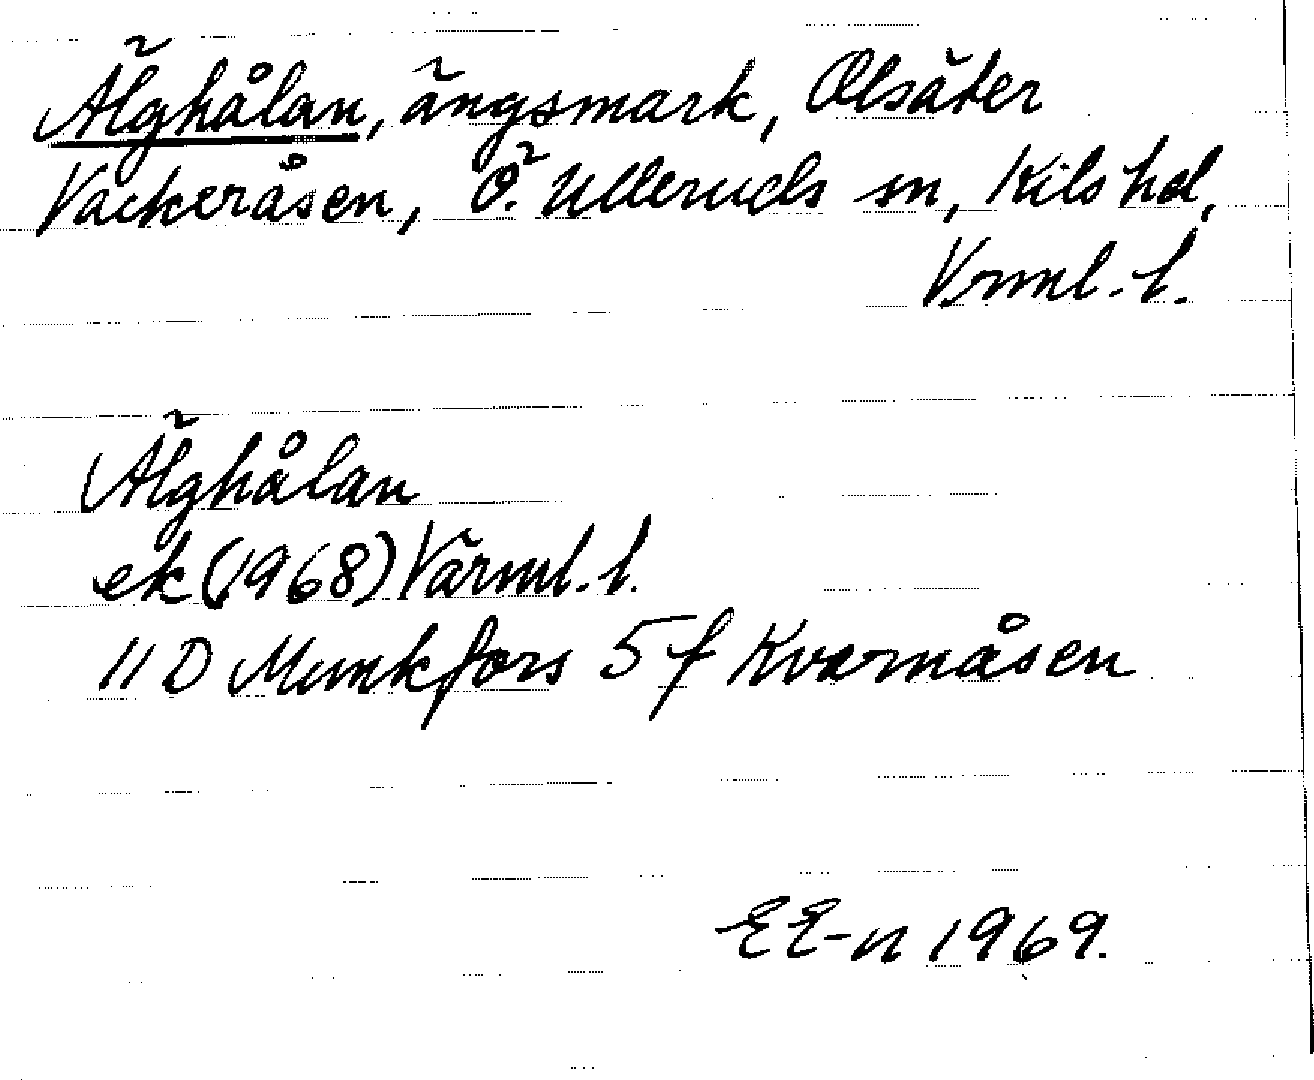 Älghålan, ängsmark, Olsäter
Vackeråsen, Ö. Ulleruds sn, Kils hd,
Vrml. l.
Älghålan
ek (1968) Värml. l.
11 D Munkfors 5 f Kvarnåsen
EE-n 1969.